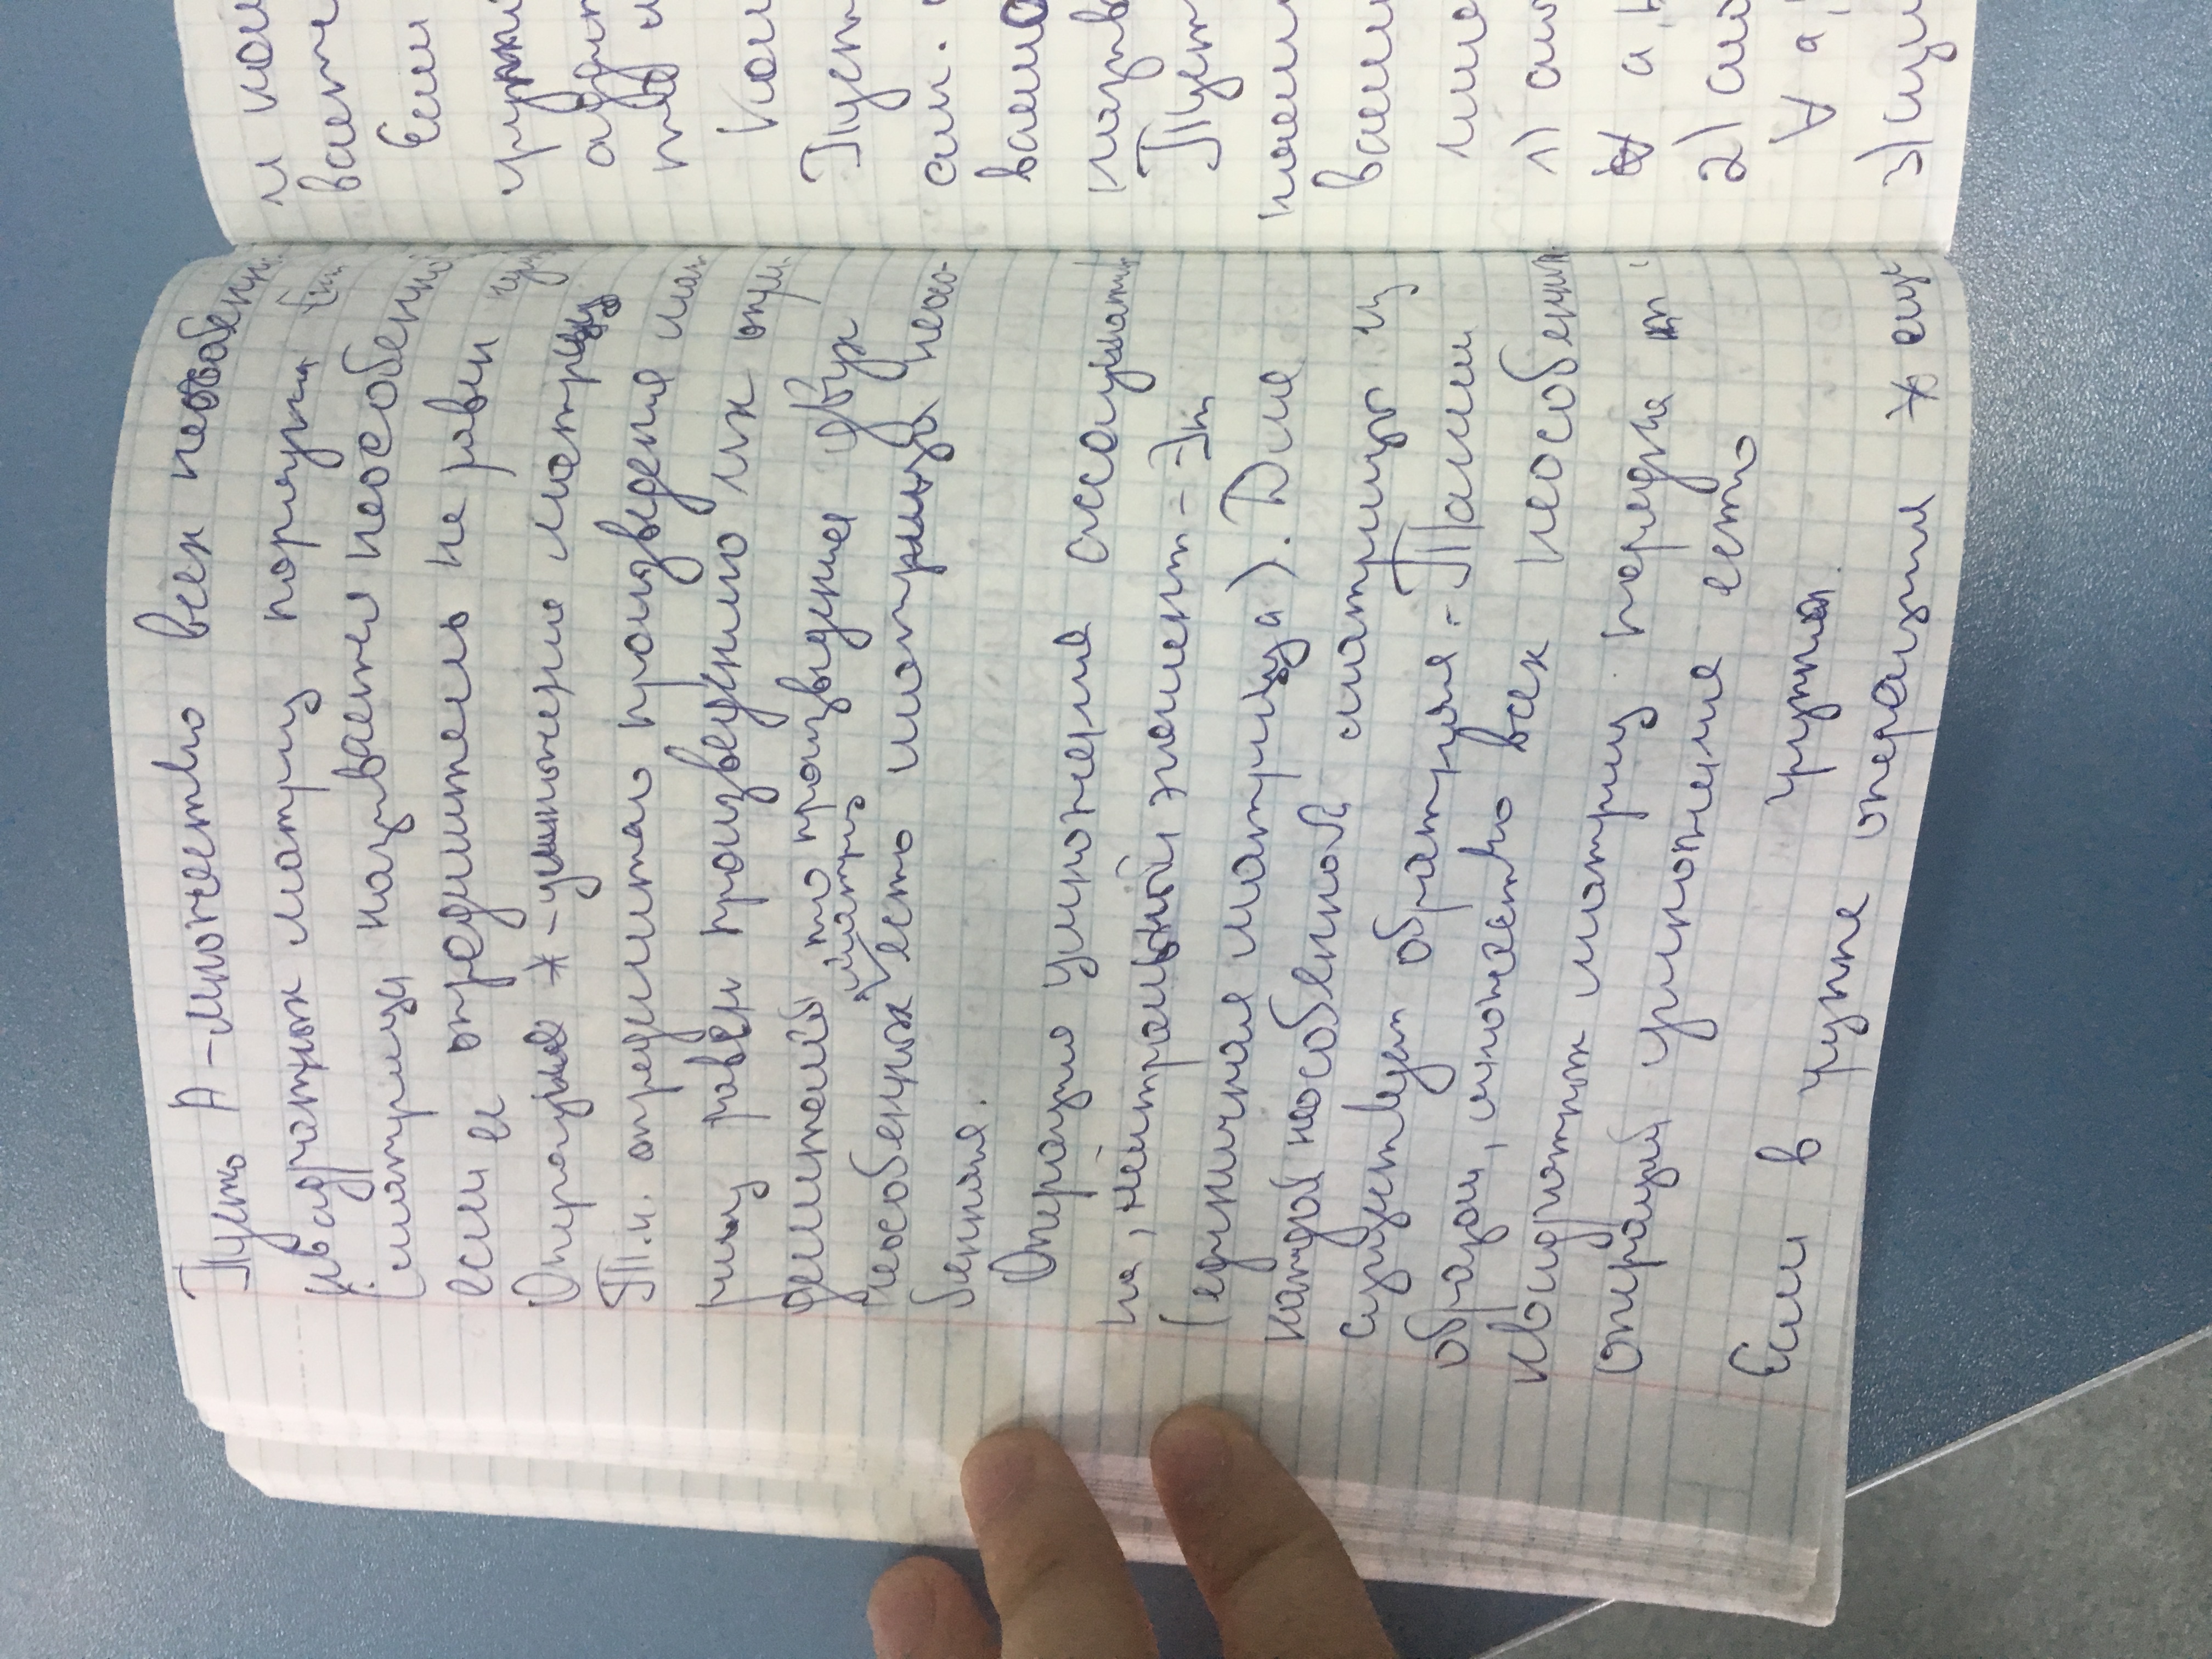 Пусть A – множество всех неособенн.
квадратных матриц порядка
(матрица называется неособенной
если ее определитель не равен нулю
Операция * – умножение матриц
Т.к. определитель произведения мат
риц равен произведению их опре-
делителей, то произведение двух
матриц
неособенных есть матрица неосо-
бенная.
Операция умножения ассоциатив
на, нейтральный элемент – Em
(единичная матрица). Для
каждой неособенной матрицы из
существует обратная. Таким
образом, множество всех неособенных
квадратных матриц порядка m
операцией умножение есть
группа.
Если в группе операция *
и ком
вается
Если
аддит
то
Ком
Пуст
ваемо
назыв
Пуст
1) ас
∀ a, b
2)
∀ a,
3)